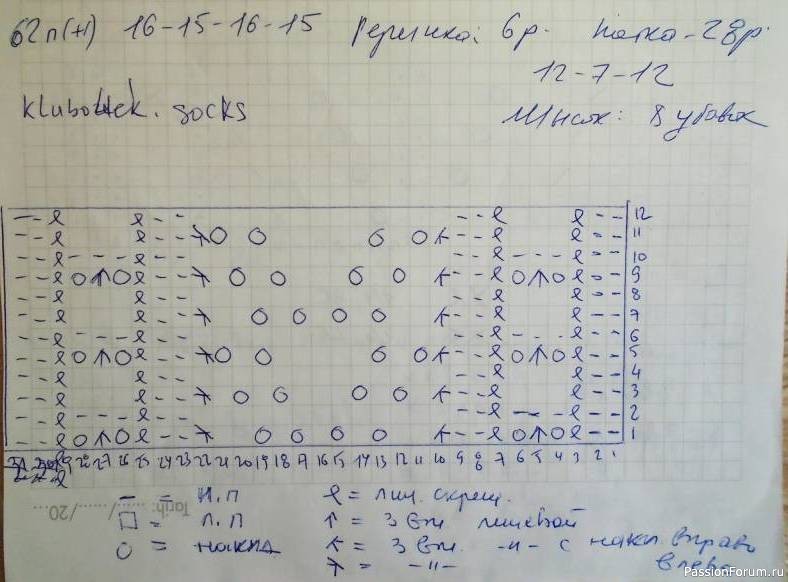 62п(+1) 16-15-16-15 Резинка: 6р. Пятка-28р.
12-7-12
klubo4ek. socks Мысок: 8 убавок
12
11
10
9
8
7
6
5
4
3
2
1
29 28 27 26 25 24 23 22 21 20 19 18 17 16 15 14 13 12 11 10 9 8 7 6 5 4 3 2 1
– = И.П ℓ = лиц. скрещ.
□ = Л.П ↑ = 3 вм. лицевой
О = накид = 3 вм. -"- с накл. вправо
= -"- влево
Tarih: ....../....../20...
PassionForum.ru